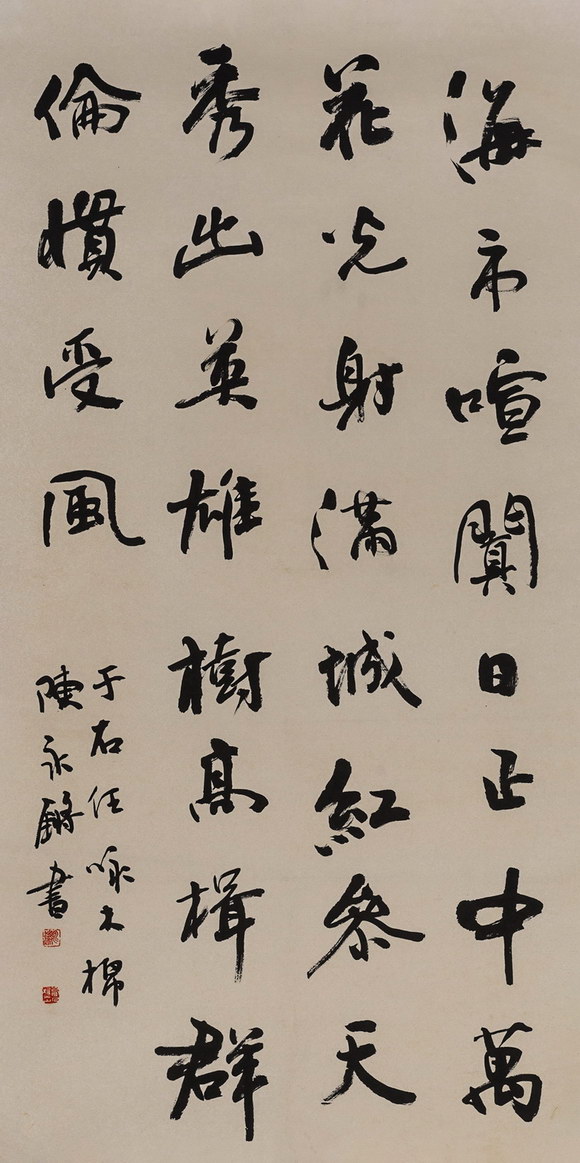 海市喧闐日正中萬
花光射滿城紅參天
秀出英雄樹高楫群
倫慣受風
于右任咏木棉
陳永鏘書